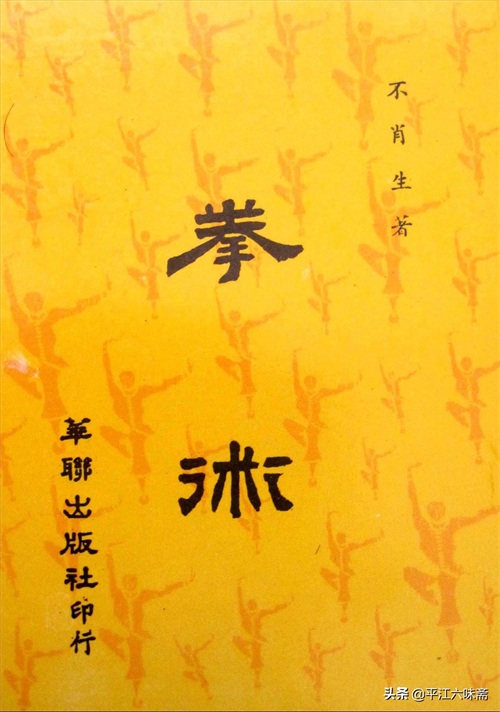 不肖生著
拳術
華聯出版社印行
头条 @平江六味斋